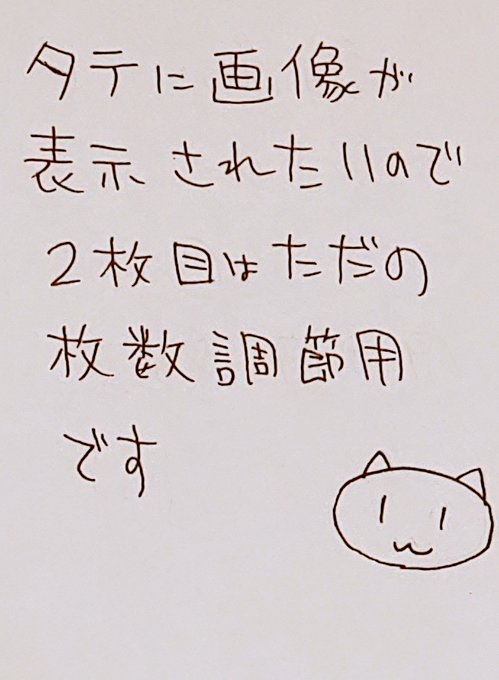 タテに画像が
表示されたいので
2枚目はただの
枚数調節用
です